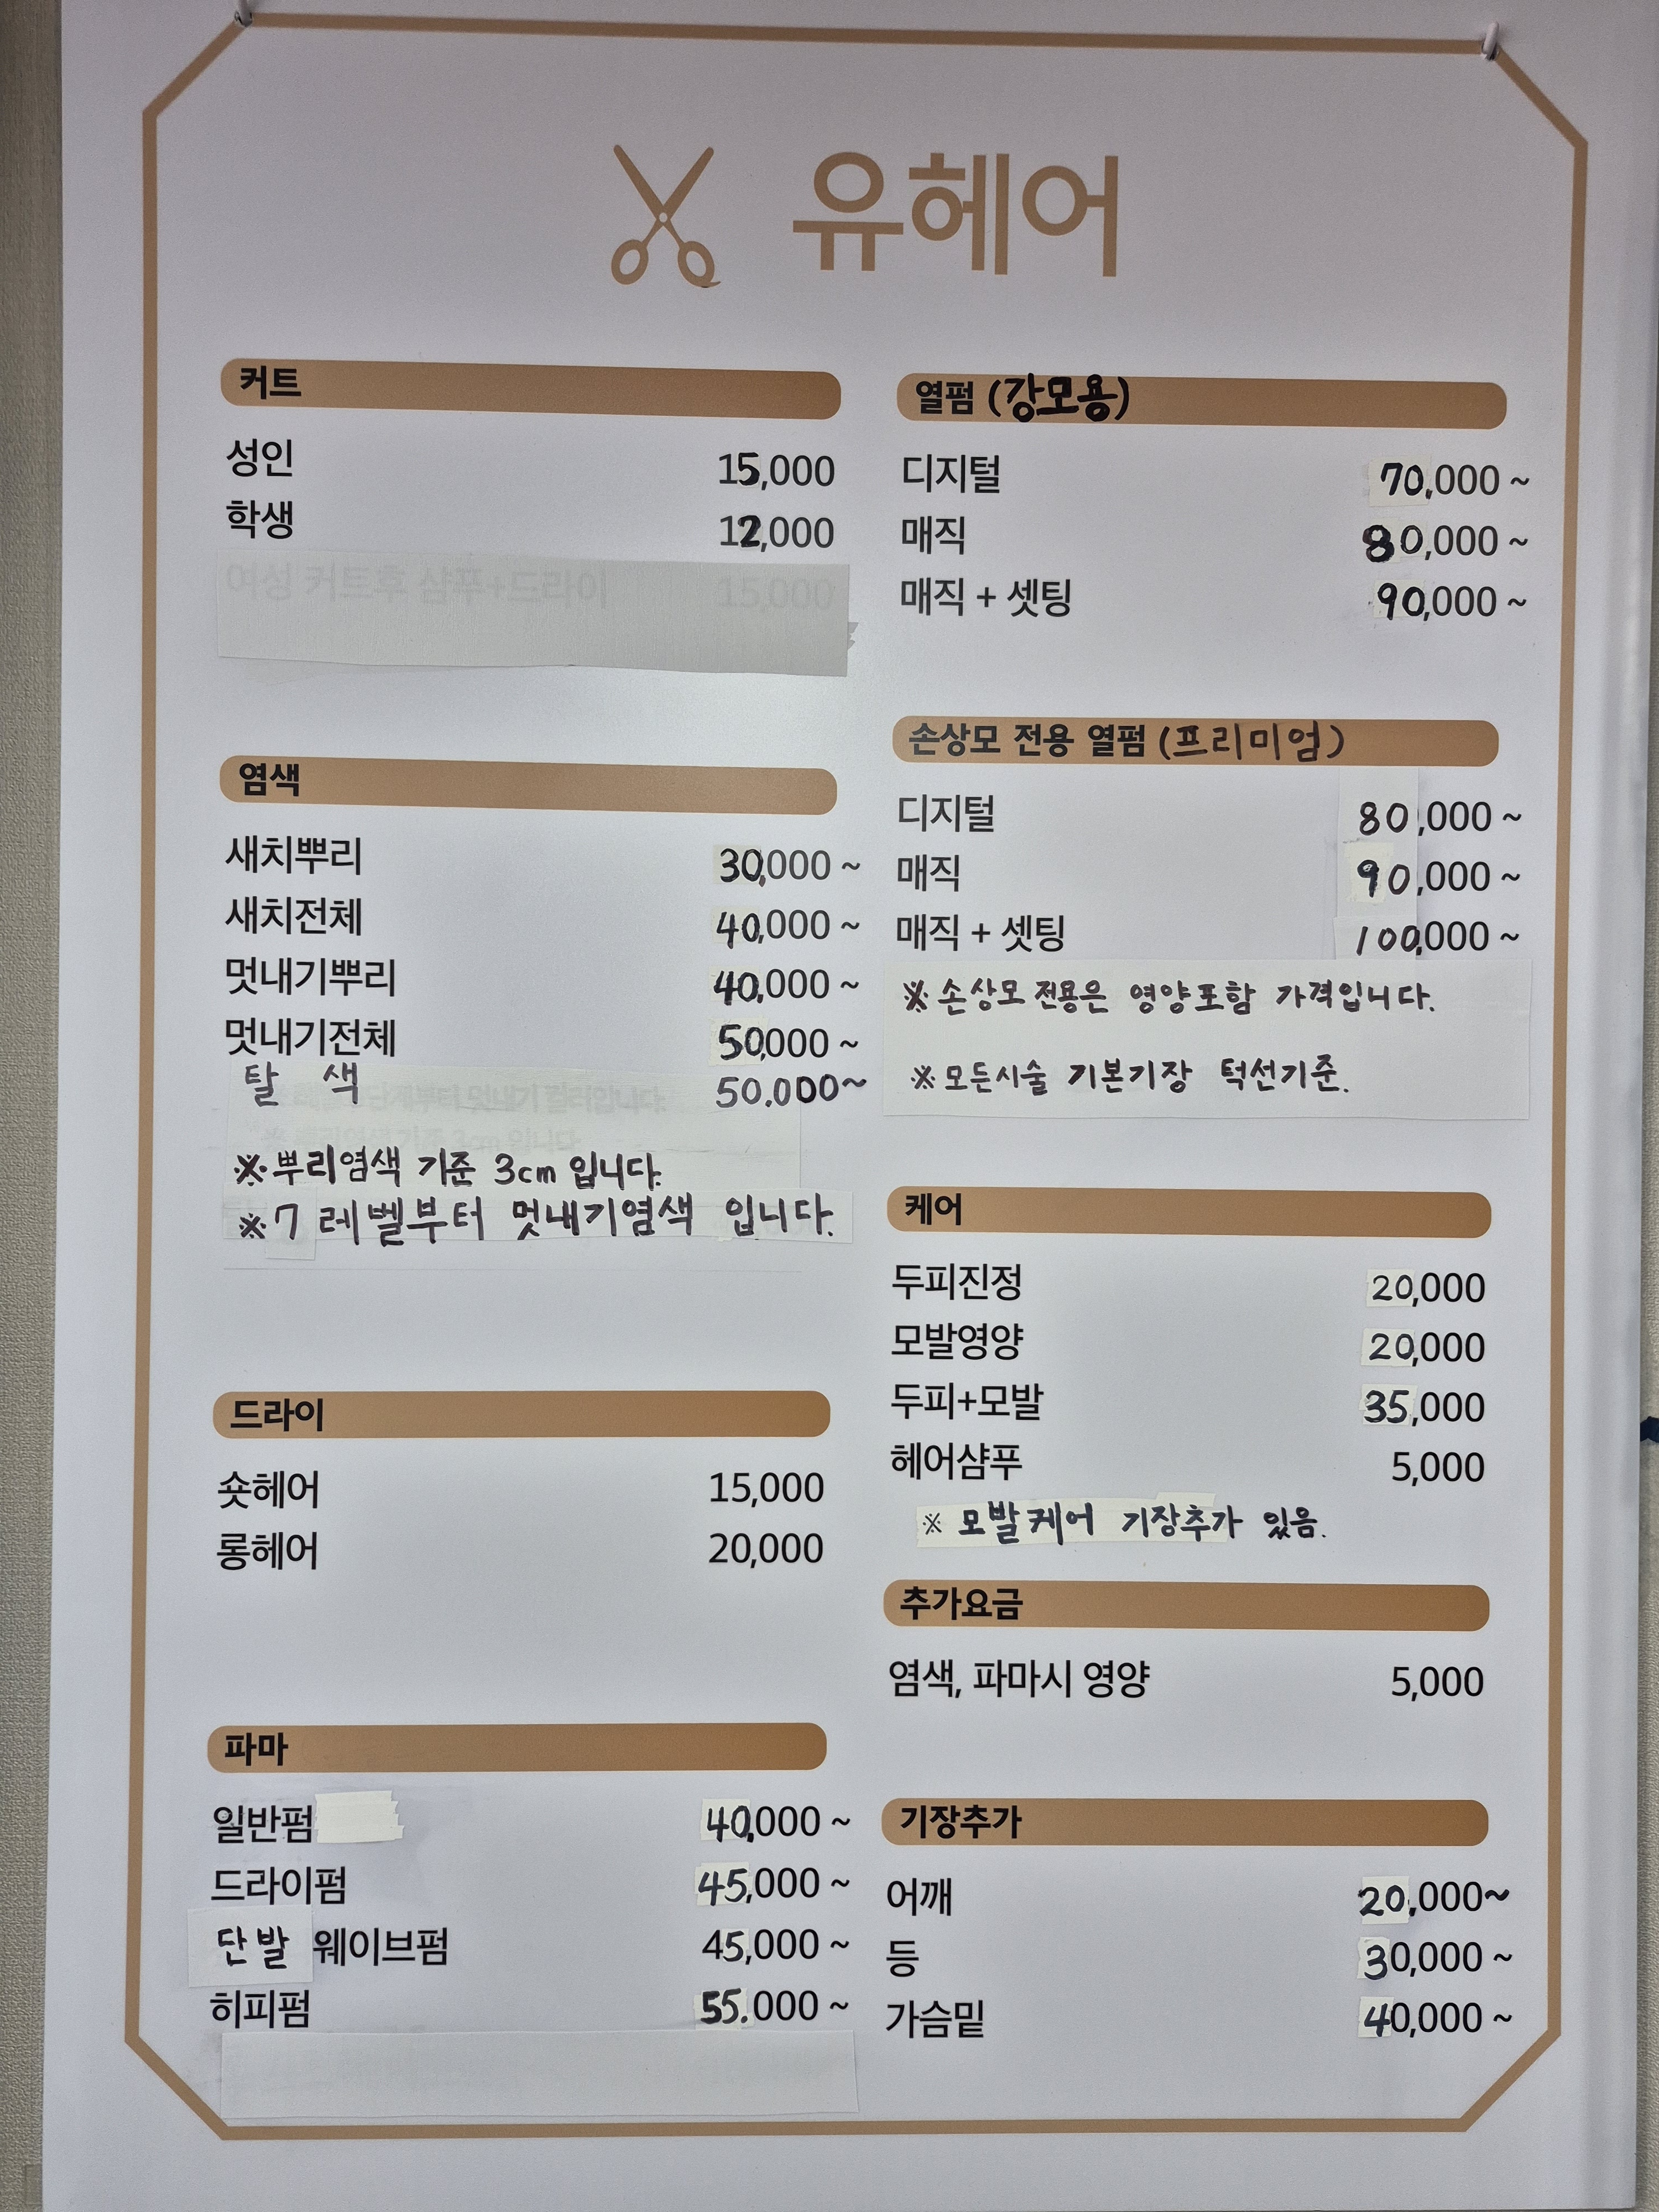 유헤어
커트
성인 15,000
학생 12,000
여성 커트후 샴푸+드라이 15,000
염색
새치뿌리 30,000 ~
새치전체 40,000 ~
멋내기뿌리 40,000 ~
멋내기전체 50,000 ~
탈 색 50.000~
※뿌리염색 기준 3cm 입니다.
※7 레벨부터 멋내기염색 입니다.
드라이
숏헤어 15,000
롱헤어 20,000
파마
일반펌 40,000 ~
드라이펌 45,000 ~
단발 웨이브펌 45,000 ~
히피펌 55.000 ~
열펌 (강모용)
디지털 70,000 ~
매직 80,000 ~
매직 + 셋팅 90,000 ~
손상모 전용 열펌 (프리미엄)
디지털 80,000 ~
매직 90,000 ~
매직 + 셋팅 100,000 ~
※ 손상모 전용은 영양포함 가격입니다.
※ 모든시술 기본기장 턱선기준.
케어
두피진정 20,000
모발영양 20,000
두피+모발 35,000
헤어샴푸 5,000
※ 모발케어 기장추가 있음.
추가요금
염색, 파마시 영양 5,000
기장추가
어깨 20,000~
등 30,000 ~
가슴밑 40,000 ~